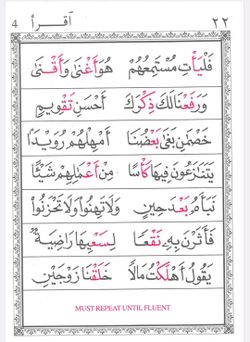 4 اقرأ ٢٢
فَلْيَأْتِ مُسْتَمِعُهُمْ هُوَ أَغْنَىٰ وَأَقْنَىٰ
وَرَفَعْنَا لَكَ ذِكْرَكَ أَحْسَنِ تَقْوِيمٍ
خَصْمَٰنِ بَغَىٰ بَعْضُنَا أَمْهِلْهُمْ رُوَيْدًا
يَتَنَٰزَعُونَ فِيهَا كَأْسًا مِنْ أَعْمَٰلِهِمْ شَيْئًا
نَبَأَهُ بَعْدَ حِينٍ وَلَا تَهِنُوا۟ وَلَا تَحْزَنُوا۟
فَأَثَرْنَ بِهِۦ نَقْعًا لِسَعْيِهَا رَاضِيَةٌ
يَقُولُ أَهْلَكْتُ مَالًا خَلَقْنَا زَوْجَيْنِ
MUST REPEAT UNTIL FLUENT